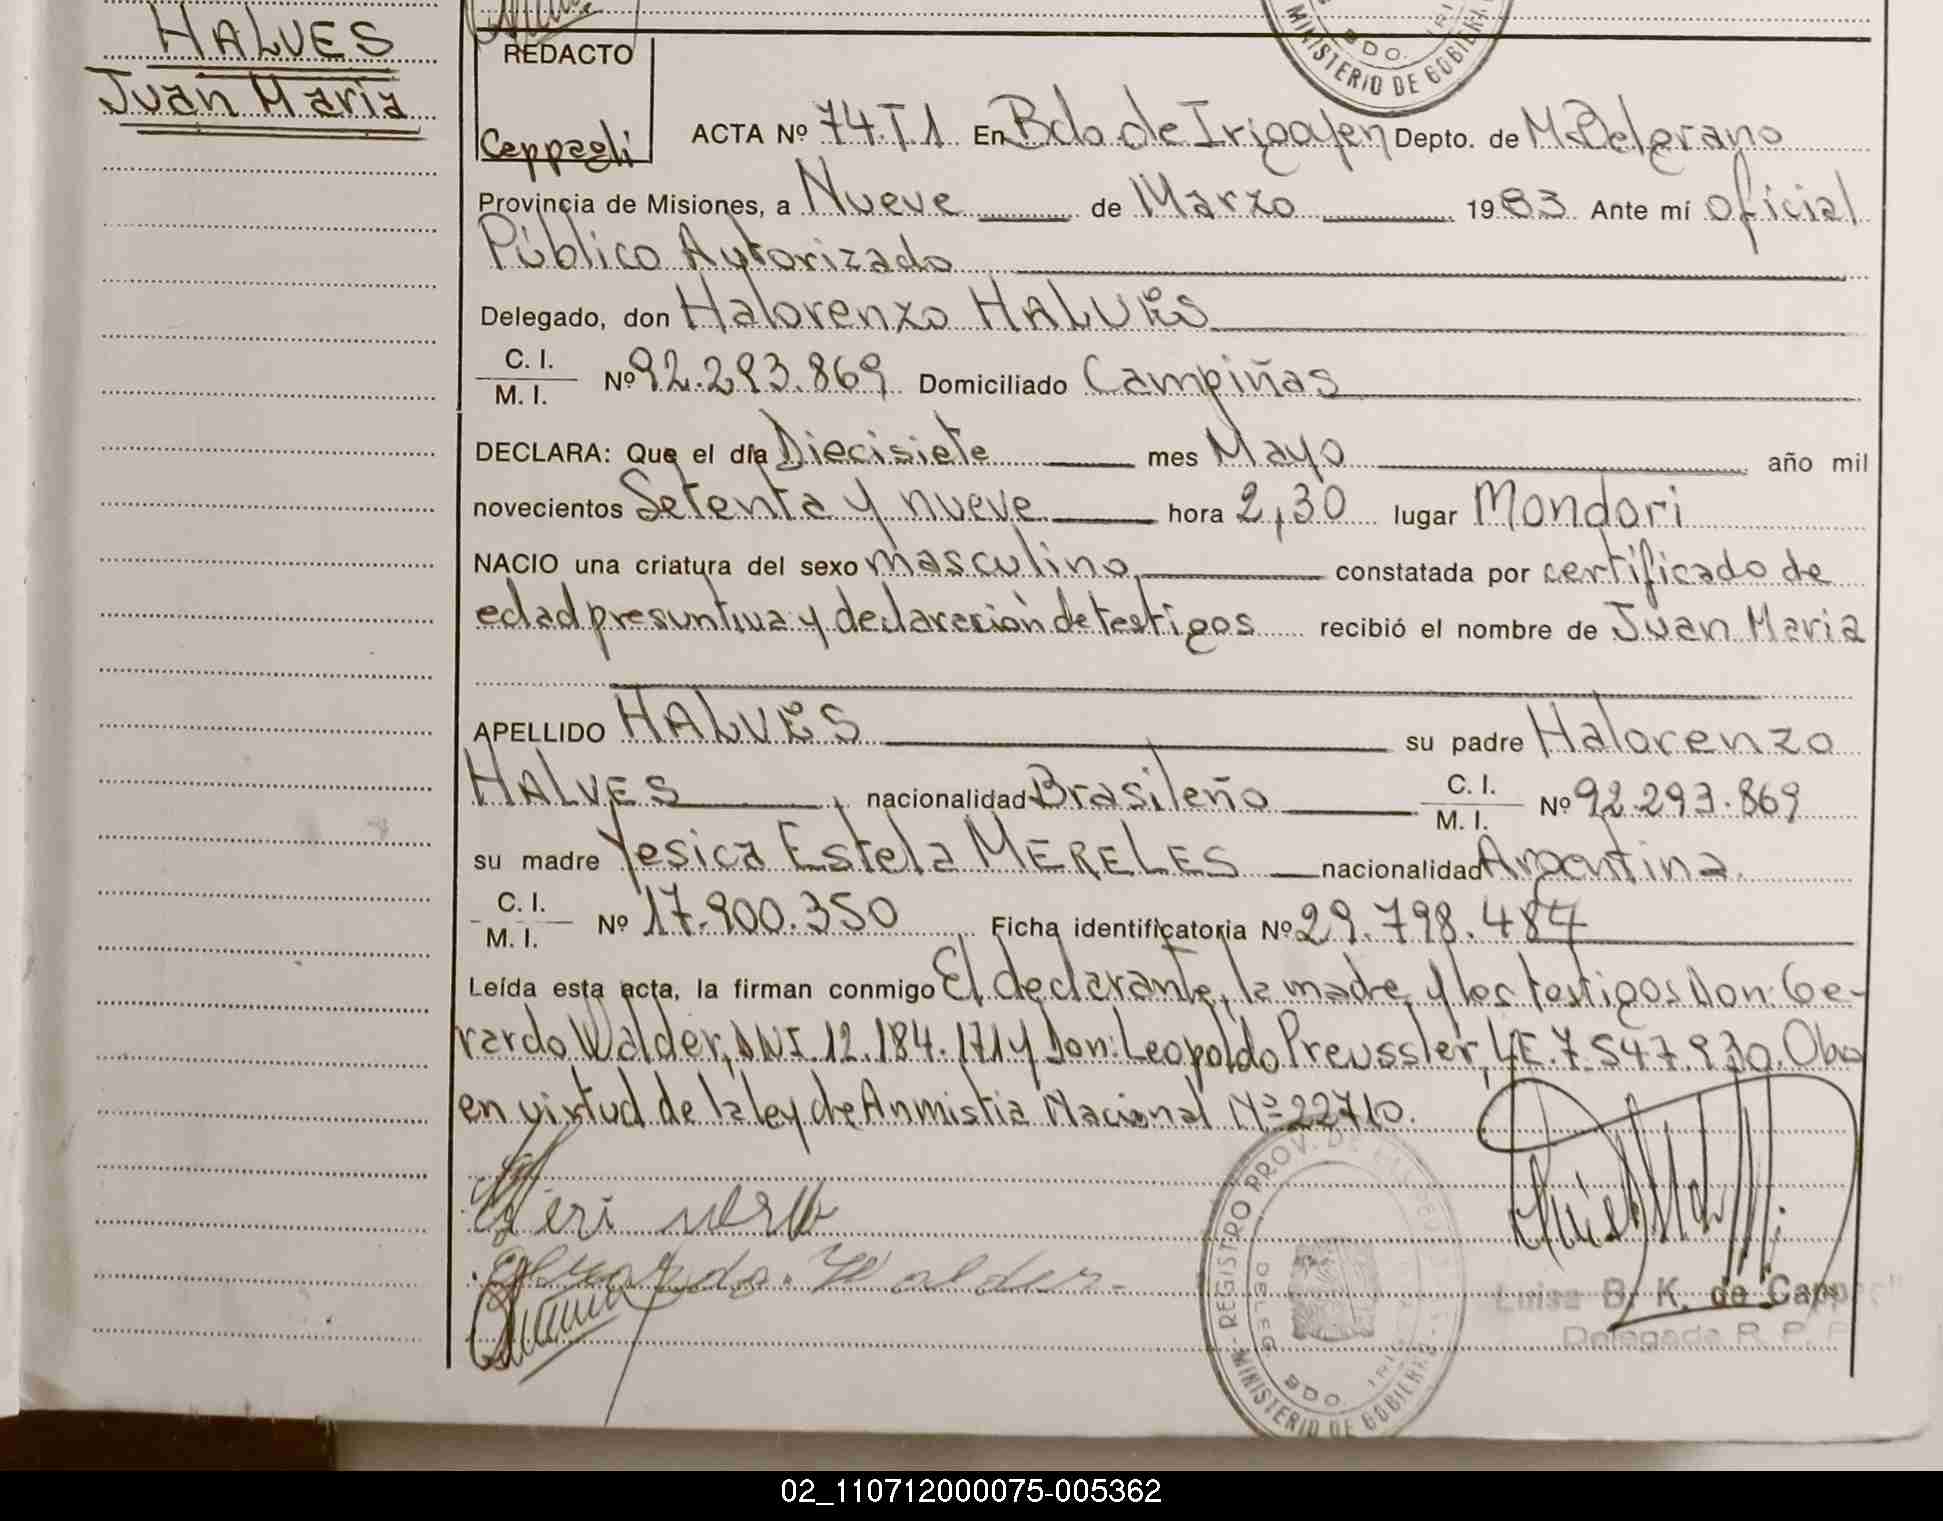 HALVES
Juan Maria
REDACTO
Ceppagli
MINISTERIO DE GOBIER
BDO. IRI
ACTA Nº 74.T1 En Bdo de Irigoyen Depto. de M Belgrano
Provincia de Misiones, a Nueve de Marzo 1983 Ante mí oficial
Público Autorizado
Delegado, don Halorenzo HALVES
C. I.
M. I.
Nº 92.293.869 Domiciliado Campiñas
DECLARA: Que el día Diecisiete mes Mayo año mil
novecientos Setenta y nueve hora 2,30 lugar Mondori
NACIO una criatura del sexo masculino constatada por certificado de
edad presuntiva y declaración de testigos recibió el nombre de Juan Maria
APELLIDO HALVES su padre Halorenzo
HALVES, nacionalidad Brasileño C. I. M. I. Nº 92.293.869
su madre Yesica Estela MERELES nacionalidad Argentina.
C. I.
M. I.
Nº 17.900.350 Ficha identificatoria Nº 29.798.484
Leída esta acta, la firman conmigo El declarante, la madre y los testigos Don: Ge-
rardo Walder, DNI 12.184.171 y Don: Leopoldo Preussler, LE. 7.547.930. Obro
en virtud de la ley de Anmistia Nacional Nº 22710.
Walder.
REGISTRO PROV. DE
DELEG
BDO. IRI
MINISTERIO DE GOBIERNO
Luisa B. K. de Cappa
Delegada R. P. P
02_110712000075-005362